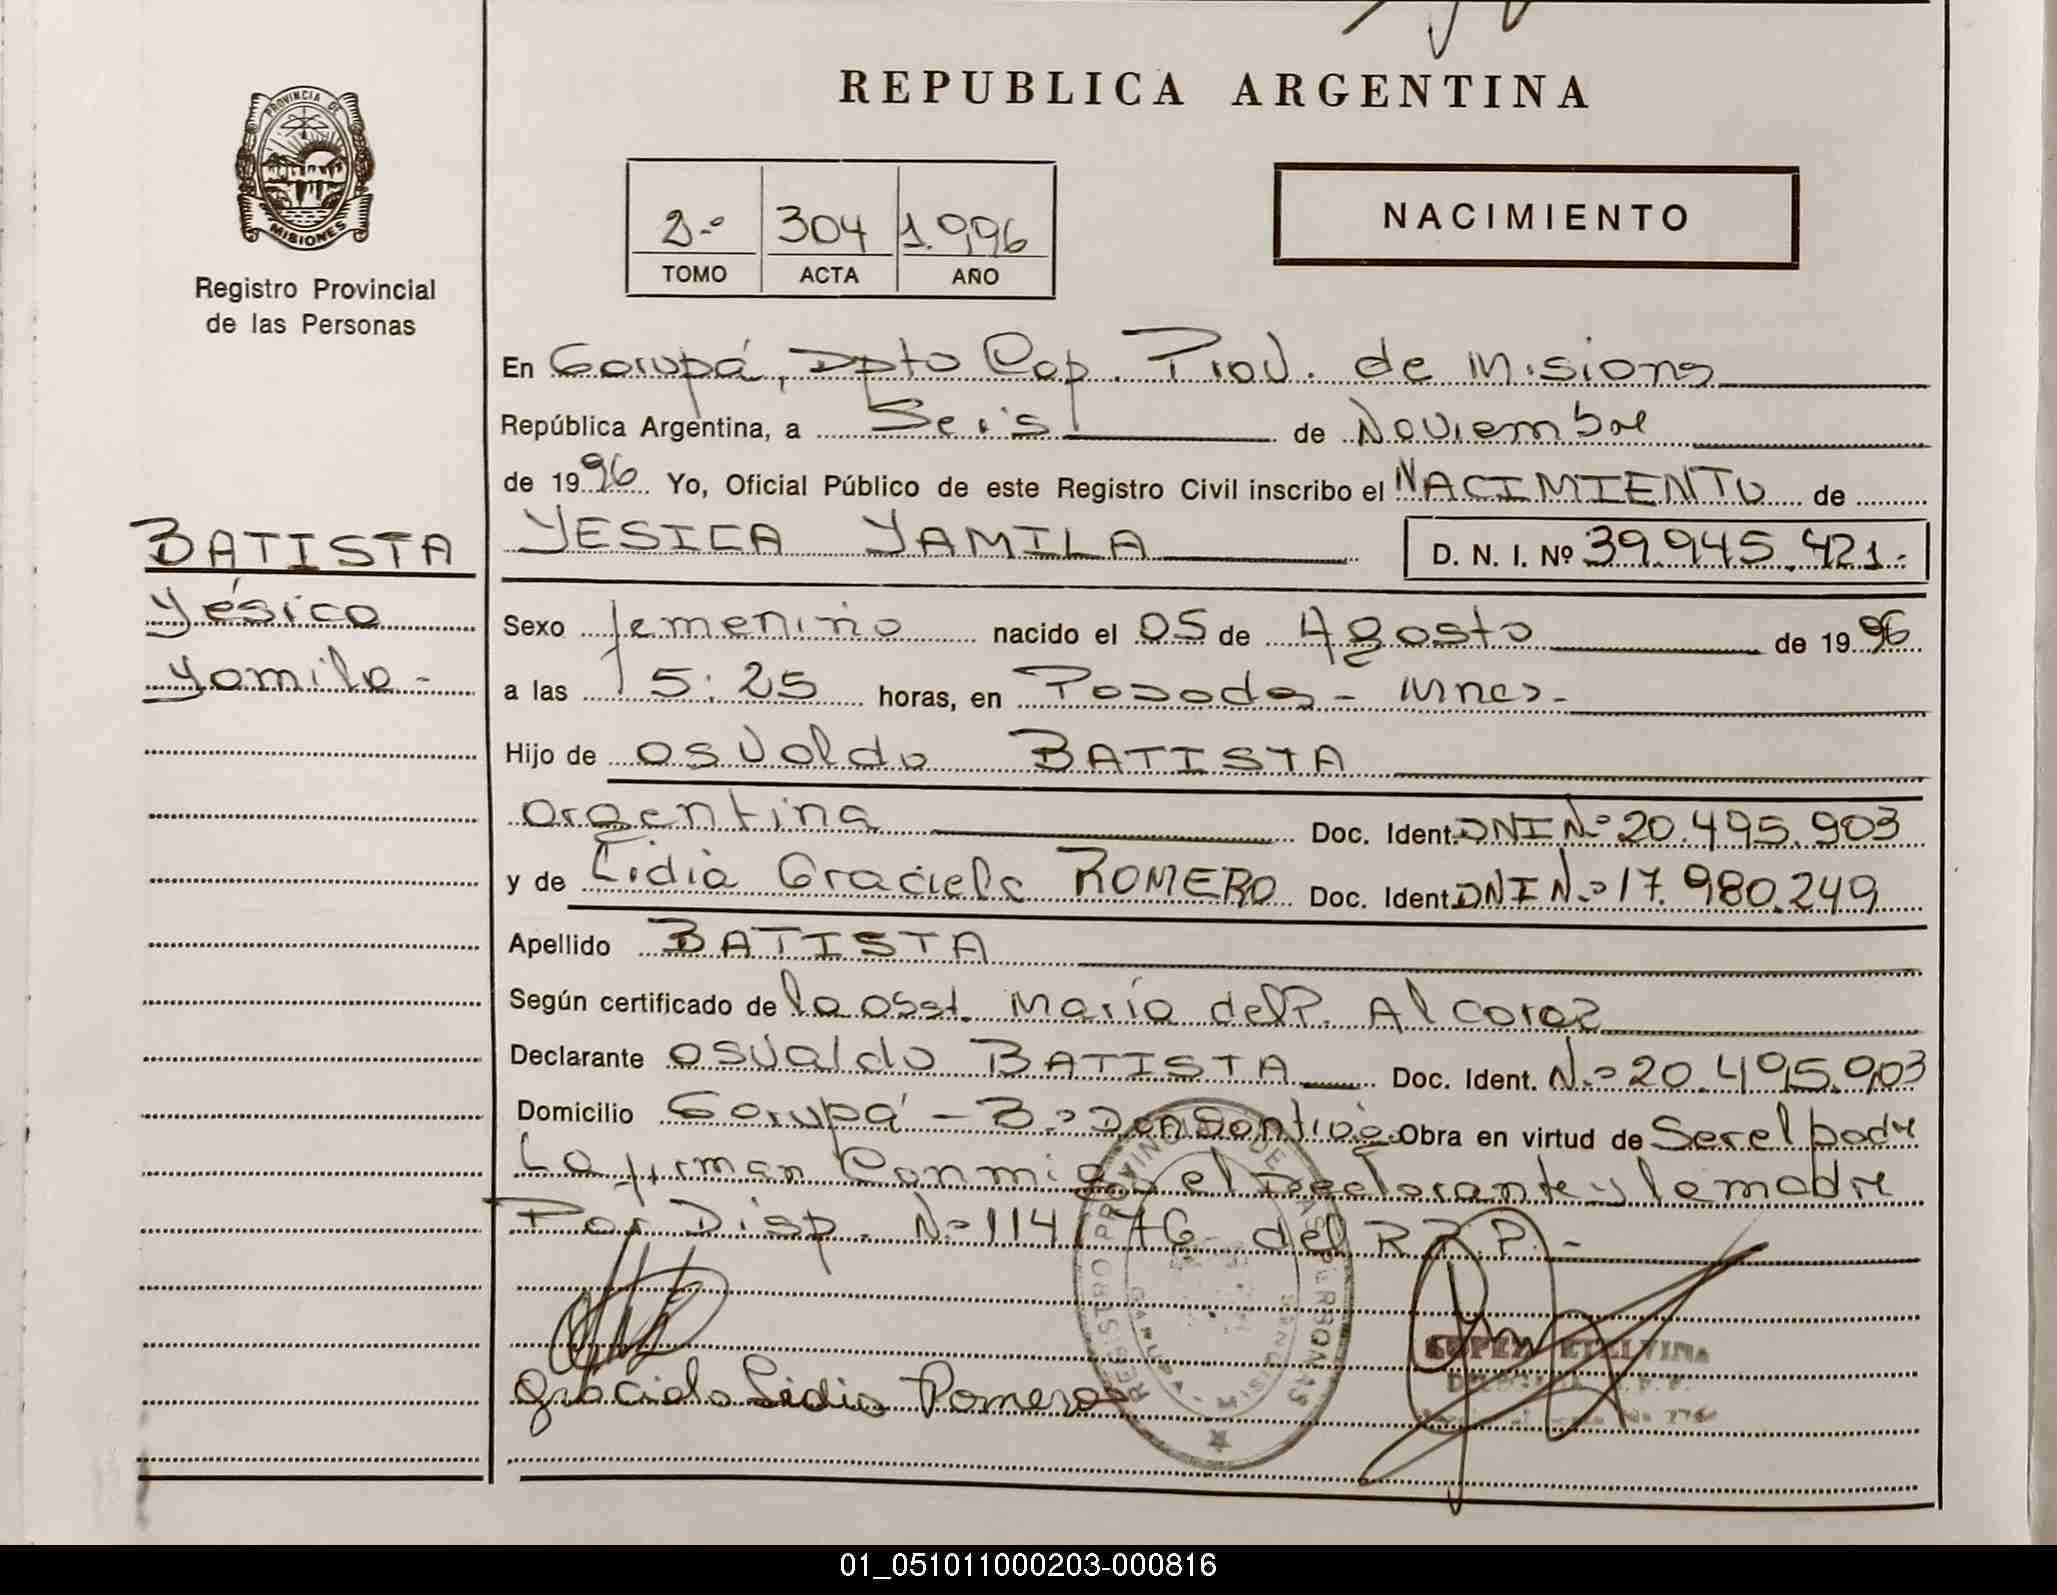 REPUBLICA ARGENTINA
PROVINCIA DE
MISIONES
Registro Provincial
de las Personas
2.º 304 1.996
TOMO ACTA AÑO
NACIMIENTO
En Garupá, Dpto Cap. Prov. de Misiones
República Argentina, a Seis de Noviembre
de 1996 Yo, Oficial Público de este Registro Civil inscribo el NACIMIENTO de
BATISTA
Yésica
Yamila -
YESICA YAMILA D. N. I. Nº 39.945.421.-
Sexo femenino nacido el 05 de Agosto de 1996
a las 15:25 horas, en Posadas - Mnes -
Hijo de Osvaldo BATISTA
argentina Doc. Ident. DNI N.º 20.495.903
y de Lidia Graciela ROMERO Doc. Ident. DNI N.º 17.980.249
Apellido BATISTA
Según certificado de la Obst. María del P. Alcaraz
Declarante Osvaldo BATISTA Doc. Ident. N.º 20.495.903
Domicilio Garupá - B.º Don Santiago Obra en virtud de Ser el padre
La firman Conmigo el Declarante y la madre
Por Disp. N.º 114/76 del R.P.P. -
REGISTRO PROVINCIAL DE LAS PERSONAS
GARUPA - MISIONES
Graciela Lidia Romero
ETELVINA
01_051011000203-000816